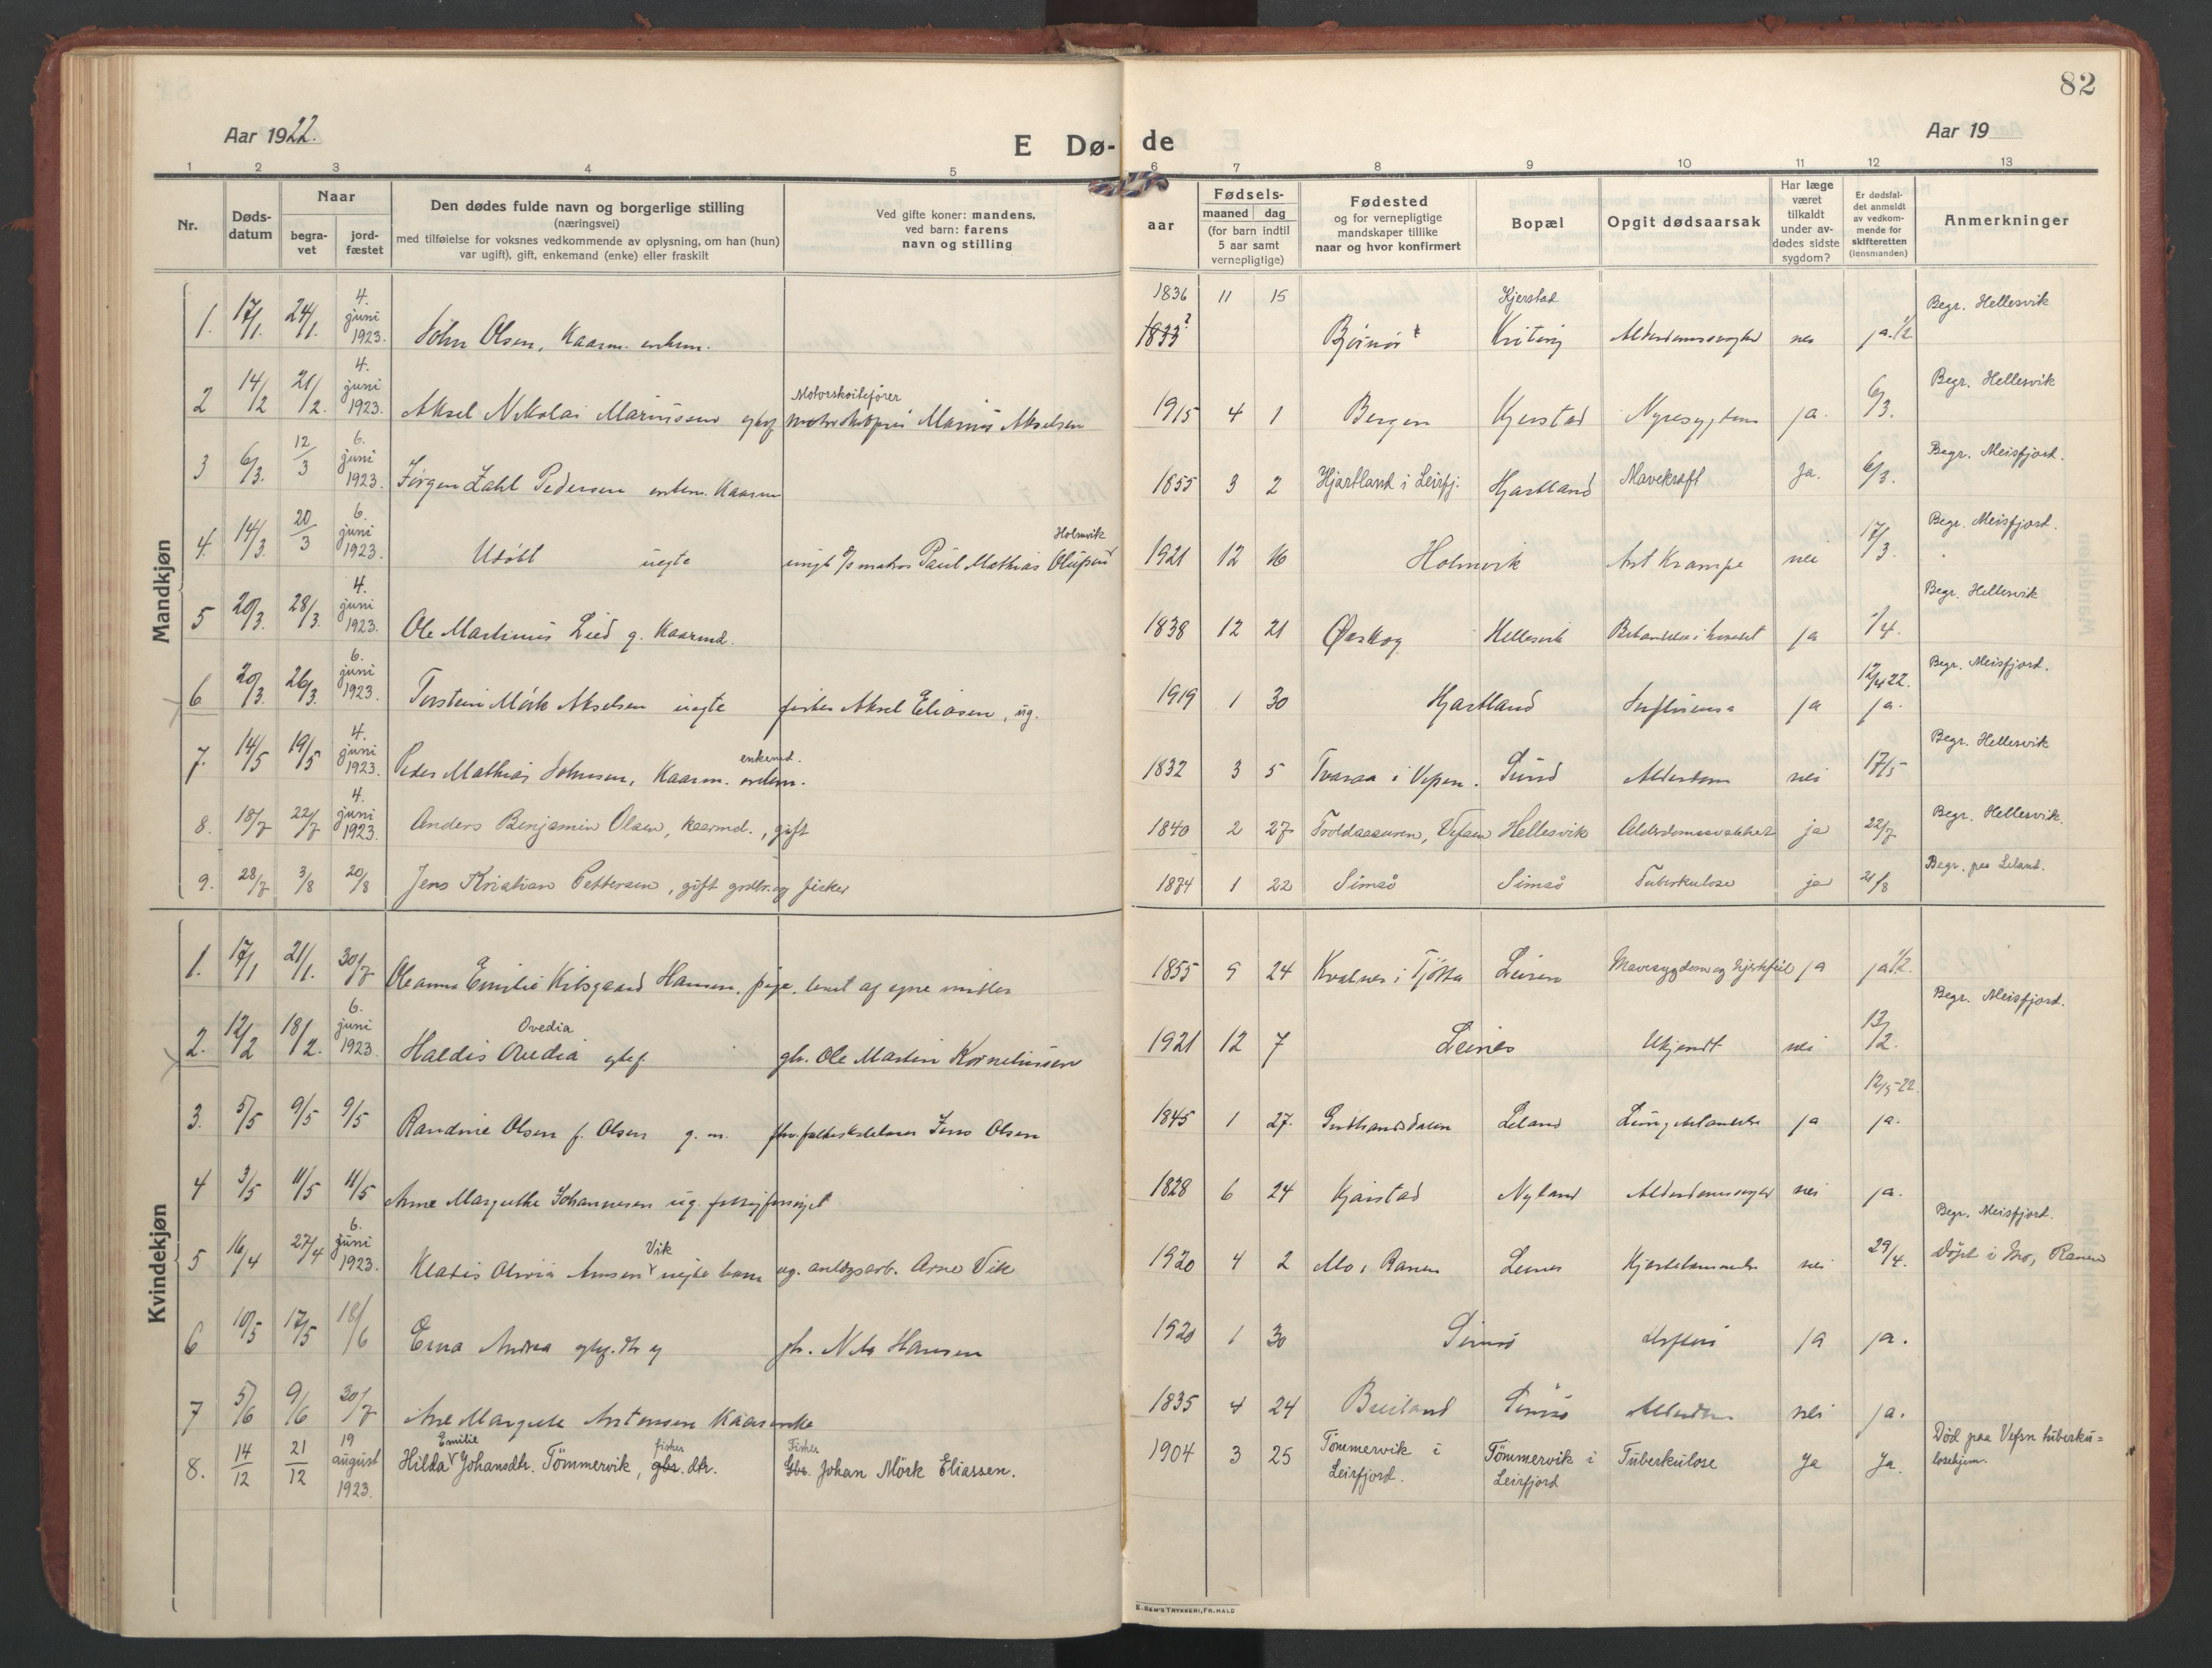 82
Aar 1922.
E Dø-
de
Aar 19
1 2 3 4 5 6 7 8 9 10 11 12 13
Nr.
Døds-
datum
Naar
begra-
vet
jord-
fæstet
Den dødes fulde navn og borgerlige stilling
(næringsvei)
med tilføielse for voksnes vedkommende av oplysning, om han (hun)
var ugift), gift, enkemand (enke) eller fraskilt
Ved gifte koner: mandens,
ved barn: farens
navn og stilling
aar
Fødsels-
maaned dag
(for barn indtil
5 aar samt
vernepligtige)
Fødested
og for vernepligtige
mandskaper tillike
naar og hvor konfirmert
Bopæl
Opgit dødsaarsak
Har læge
været
tilkaldt
under av-
dødes sidste
sygdom?
Er dødsfal-
det anmeldt
av vedkom-
mende for
skifteretten
(lensmanden)
Anmerkninger
Mandkjøn
4. 1836 11 15 Kjerstad Begr. Hellesvik
1. 17/1. 24/1. juni 1923. John Olsen, Kaarm. enkem. 1833? Bjørnør nei ja. 1/2
4. Motorskøitefører Begr. Hellesvik
2 14/2 21/2. juni 1923. Aksel Nikolai Mariussen Marius Akselsen 1915 4 1 Bergen Kjerstad Nyresygdom ja. 6/3.
6. Begr. Meisfjord.
3 6/3. 12/3 juni 1923. Jørgen Zahl Pedersen enkem. Kaarm 1855 3 2 Hjartland i Leirfj. Hjartland Mavekræft Ja. 6/3.
6. Holmvik Begr. Meisfjord.
4. 14/3. 20/3 juni 1923. Udøbt uegte matros Paul Mathias Olufsen 1921 12 16 Holmvik Ant Krampe nei 17/3.
4. Begr. Hellesvik
5 20/3. 28/3. juni 1923. Ole Martinus Lied g. Kaarmd. 1838 12 21 Ørskog Hellesvik ja 1/4.
6. 12/4 22. Begr. Meisfjord.
6 20/3. 26/3. juni 1923. Torstein Mørk Akselsen uegte fisker Aksel Eliasen, ug. 1919 1 30 Hjartland Influensa ja ja.
4. enkemd. Begr. Hellesvik
7. 14/5 19/5 juni 1923. Peder Mathias Johnsen, Kaarm. enkem. 1832 3 5 Tvaraa i Vefsn. Sund Alderdom nei 17/5
4. Begr. Hellesvik.
8. 18/7 22/7 juni 1923. Anders Benjamin Olsen, kaarmd., gift 1840 2 27 Troldaasuren, Vefsn Hellesvik Alderdomssvakhet ja 22/7
Begr. paa Leland.
9. 28/7 3/8 20/8 Jens Kristian Pettersen, gift grdbr. og fisker 1874 1 22 Simsø Simsø Tuberkulose ja 21/8
Kvindekjøn
1. 17/1 21/1. 30/7 Oleanna Emilie Kilsgaard Hansen, pige, levet af egne midler 1855 9 24 Kvalnes i Tjøtta Leiren Mavesygdom og hjertefeil ja ja 1/2.
6. Ovedia Begr. Meisfjord.
2. 12/2 18/2. juni 1923. Haldis Ovedia gbr. Ole Martin Korneliussen 1921 12 7 Leines Ukjendt nei 13/2.
12/5-22.
3. 5/5 9/5 9/5 Randine Olsen f. Olsen g. m. Jens Olsen 1845 1 27. Gudbrandsdalen Leland Lungebetændelse ja ja.
4 3/5 11/5 11/5 Anne Margrethe Johannesen ug. fattigforsørget 1828 6 24 Kjærstad Nyland nei ja.
6. Vik Begr. Meisfjord.
5 16/4 27/4 juni 1923. Kladis Olivia uegte barn ug. anlægsarb. Arne Vik 1920 4 2 Mo i Ranen Leines nei 29/4. Døpt i Mo, Ranen
6 10/5 17/5 18/6 Erna Andrea gbr. Nils Hansen 1920 1 30 Simsø ja ja.
7 5/6 9/6 30/7 Ane Margrete Antonsen Kaarenke 1835 4 24 Breiland Simsø Alderdom nei ja.
14/12 21/12 19 august 1923. Emilie fisker Fisker Død paa Vefsn tuberku-
8. Hilda Johansdtr. Tömmervik, gbr. dtr. Gbr. Johan Mörk Eliassen. 1904 3 25 Tömmervik i Leirfjord. Tömmervik i Leirfjord Tüberkülose Ja Ja. losehjem.
E. SEM'S TRYKKERI, FR. HALD